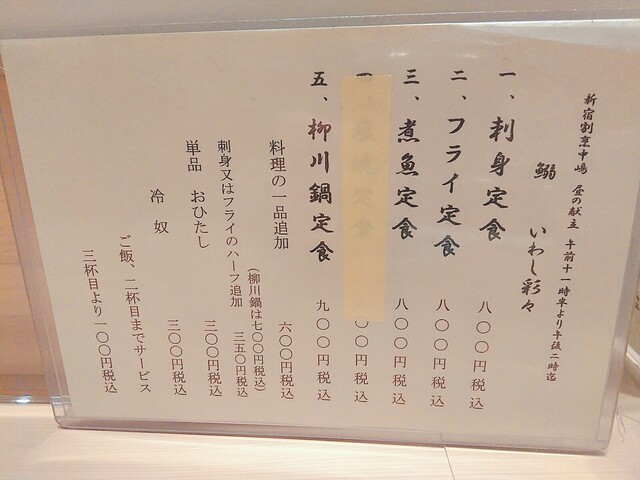 新宿割烹中嶋 昼の献立 午前十一時半より午後二時迄
鰯 いわし彩々
一、刺身定食 八〇〇円税込
二、フライ定食 八〇〇円税込
三、煮魚定食 八〇〇円税込
〇〇円税込
五、柳川鍋定食 九〇〇円税込
料理の一品追加 六〇〇円税込
(柳川鍋は七〇〇円税込)
刺身又はフライのハーフ追加 三五〇円税込
単品 おひたし 三〇〇円税込
冷奴 三〇〇円税込
ご飯、二杯目までサービス
三杯目より一〇〇円税込